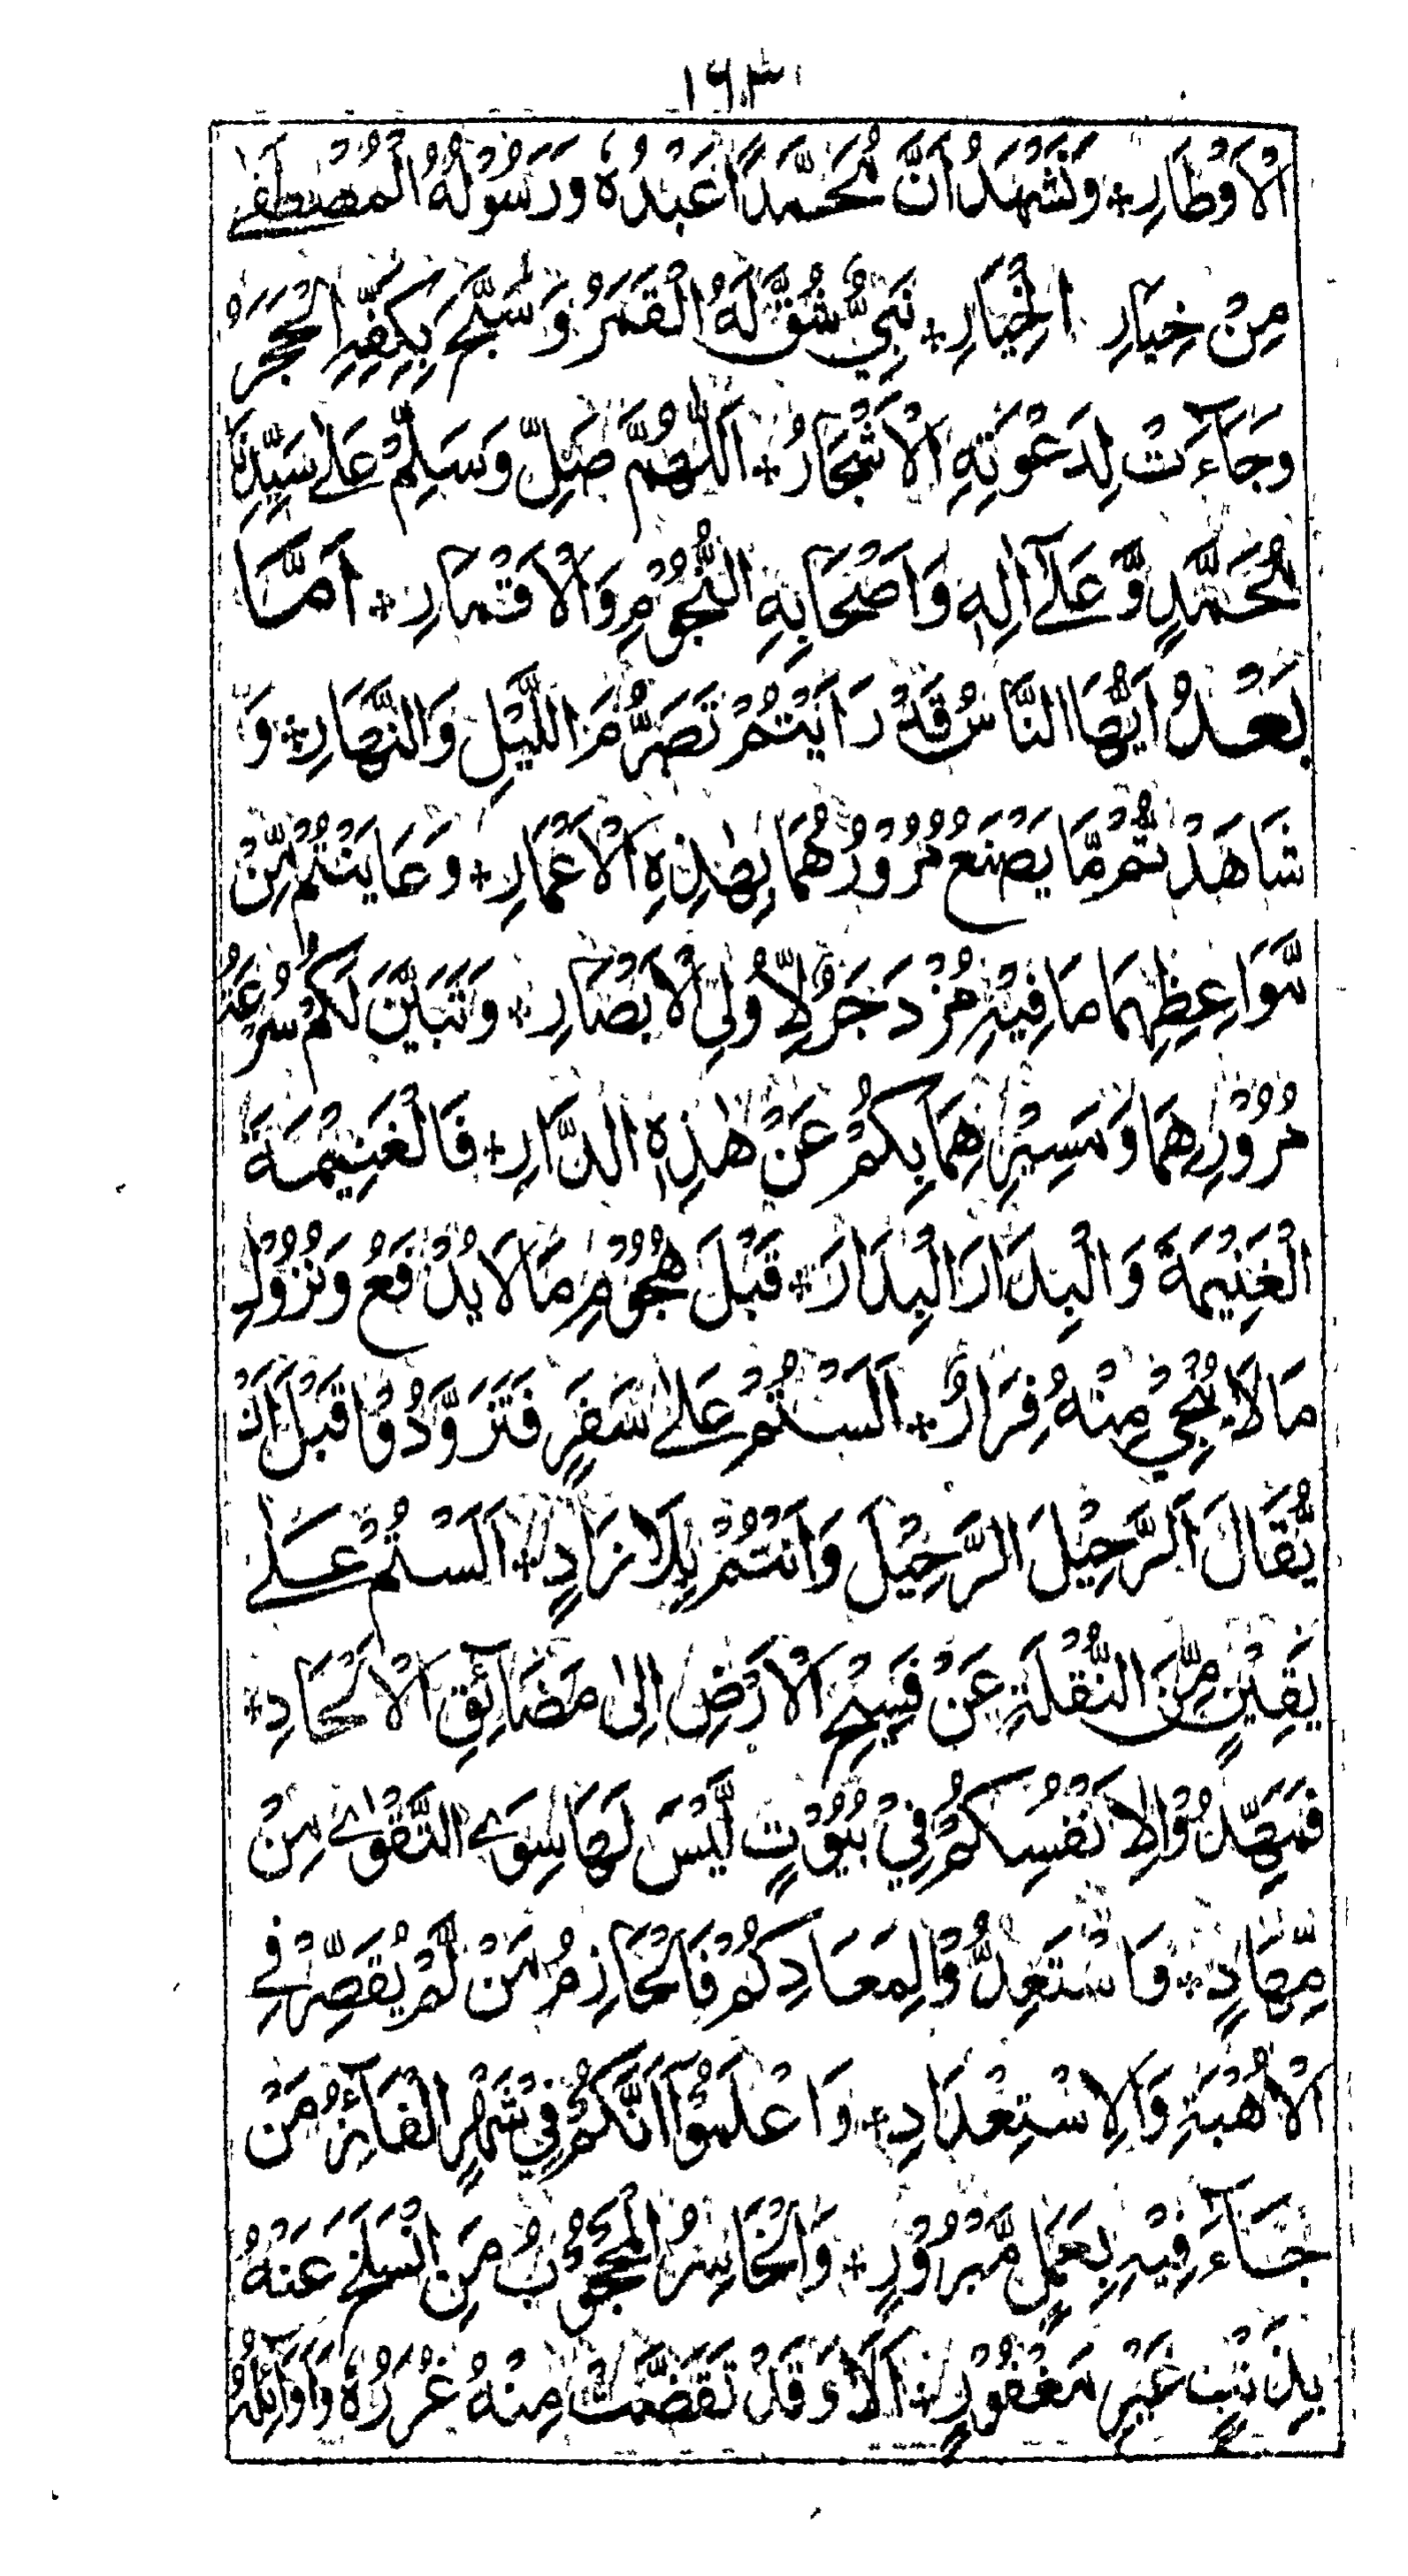 ۱۶۳
الْاَوْطَارِ + وَنَشْهَدُ اَنَّ مُحَمَّدًا عَبْدُهٗ وَرَسُوْلُهُ الْمُصْطَفٰے
مِنْ خِيَارِ الْخِيَارِ + نَبِيٌّ شُقَّ لَهُ الْقَمَرُ وَسَبَّحَ بِكَفِّهِ الْحَجَرُ
وَجَآءَتْ لِدَعْوَتِهِ الْاَشْجَارُ + اَللّٰهُمَّ صَلِّ وَسَلِّمْ عَلٰے سَيِّدِنَا
مُحَمَّدٍ وَّعَلٰٓے اٰلِهٖ وَاَصْحَابِهِ النُّجُوْمِ وَالْاَقْمَارِ + اَمَّا
بَعْدُ اَيُّهَا النَّاسُ قَدْ رَاَيْتُمْ تَصَرُّمَ اللَّيْلِ وَالنَّهَارِ + وَ
شَاهَدْتُّمْ مَّا يَصْنَعُ مُرُوْرُهُمَا بِهٰذِهِ الْاَعْمَارِ + وَعَايَنْتُمْ مِّنْ
مَّوَاعِظِهِمَا مَا فِيْهِ مُزْدَجَرٌ لِّاُولِي الْاَبْصَارِ + وَتَبَيَّنَ لَكُمْ سُرْعَةُ
مُرُوْرِهِمَا وَمَسِيْرِهِمَا بِكُمْ عَنْ هٰذِهِ الدَّارِ + فَالْغَنِيْمَةَ
الْغَنِيْمَةَ وَالْبِدَارَ الْبِدَارَ + قَبْلَ هُجُوْمِ مَا لَا يُدْفَعُ وَنُزُوْلِ
مَا لَا يُنْجِيْ مِنْهُ فِرَارٌ + اَلَسْتُمْ عَلٰے سَفَرٍ فَتَزَوَّدُوْا قَبْلَ اَنْ
يُّقَالَ اَلرَّحِيْلَ الرَّحِيْلَ وَاَنْتُمْ بِلَا زَادٍ + اَلَسْتُمْ عَلٰے
يَقِيْنٍ مِّنَ النُّقْلَةِ عَنْ فَسِيْحِ الْاَرْضِ اِلٰى مَضَآئِقِ الْاَلْحَادِ +
فَمَهِّدُوْا لِاَنْفُسِكُمْ فِيْ بُيُوْتٍ لَّيْسَ لَهَا سِوَے التَّقْوٰے مِنْ
مِّهَادٍ + وَاسْتَعِدُّوْا لِمَعَادِكُمْ فَالْحَازِمُ مَنْ لَّمْ يُقَصِّرْ فِے
الْاُهْبَةِ وَالْاِسْتِعْدَادِ + وَاعْلَمُوْٓا اَنَّكُمْ فِيْ شَهْرٍ الْفَآئِزُ مَنْ
جَآءَ فِيْهِ بِعَمَلٍ مَّبْرُوْرٍ + وَالْخَاسِرُ الْمَحْجُوْبُ مَنِ انْسَلَخَ عَنْهُ
بِذَنْبٍ غَيْرِ مَغْفُوْرٍ + اَلَا وَقَدْ تَقَضَّتْ مِنْهُ غُرَرُهٗ وَاَوَآئِلُهٗ